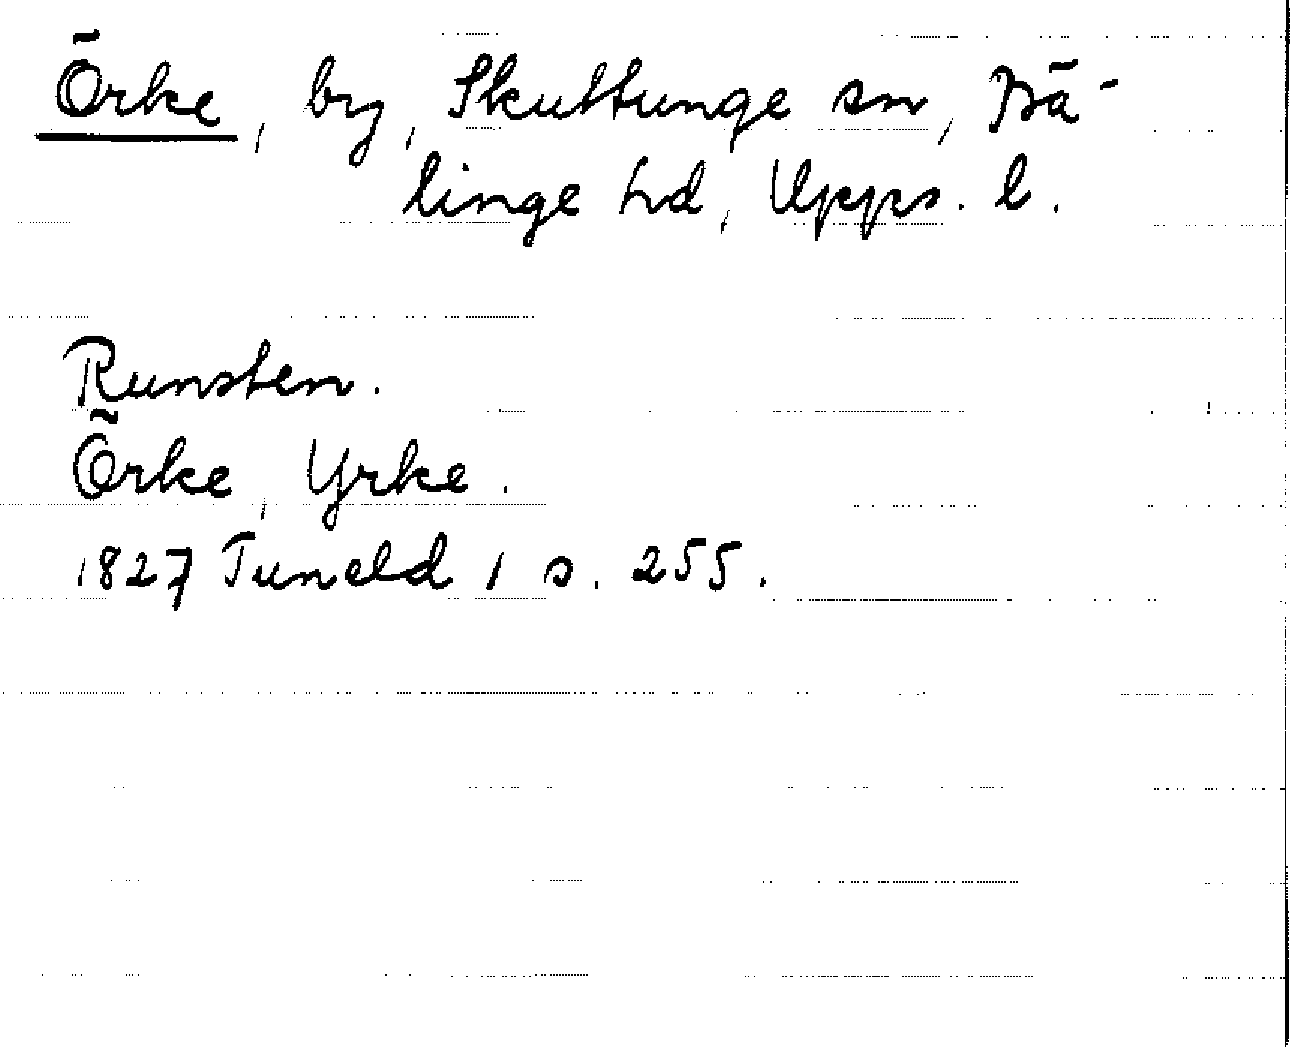 Örke, by, Skuttunge sn, Bä-
linge hd, Upps. l.
Runsten.
Örke, Yrke.
1827 Tuneld 1 s. 255.